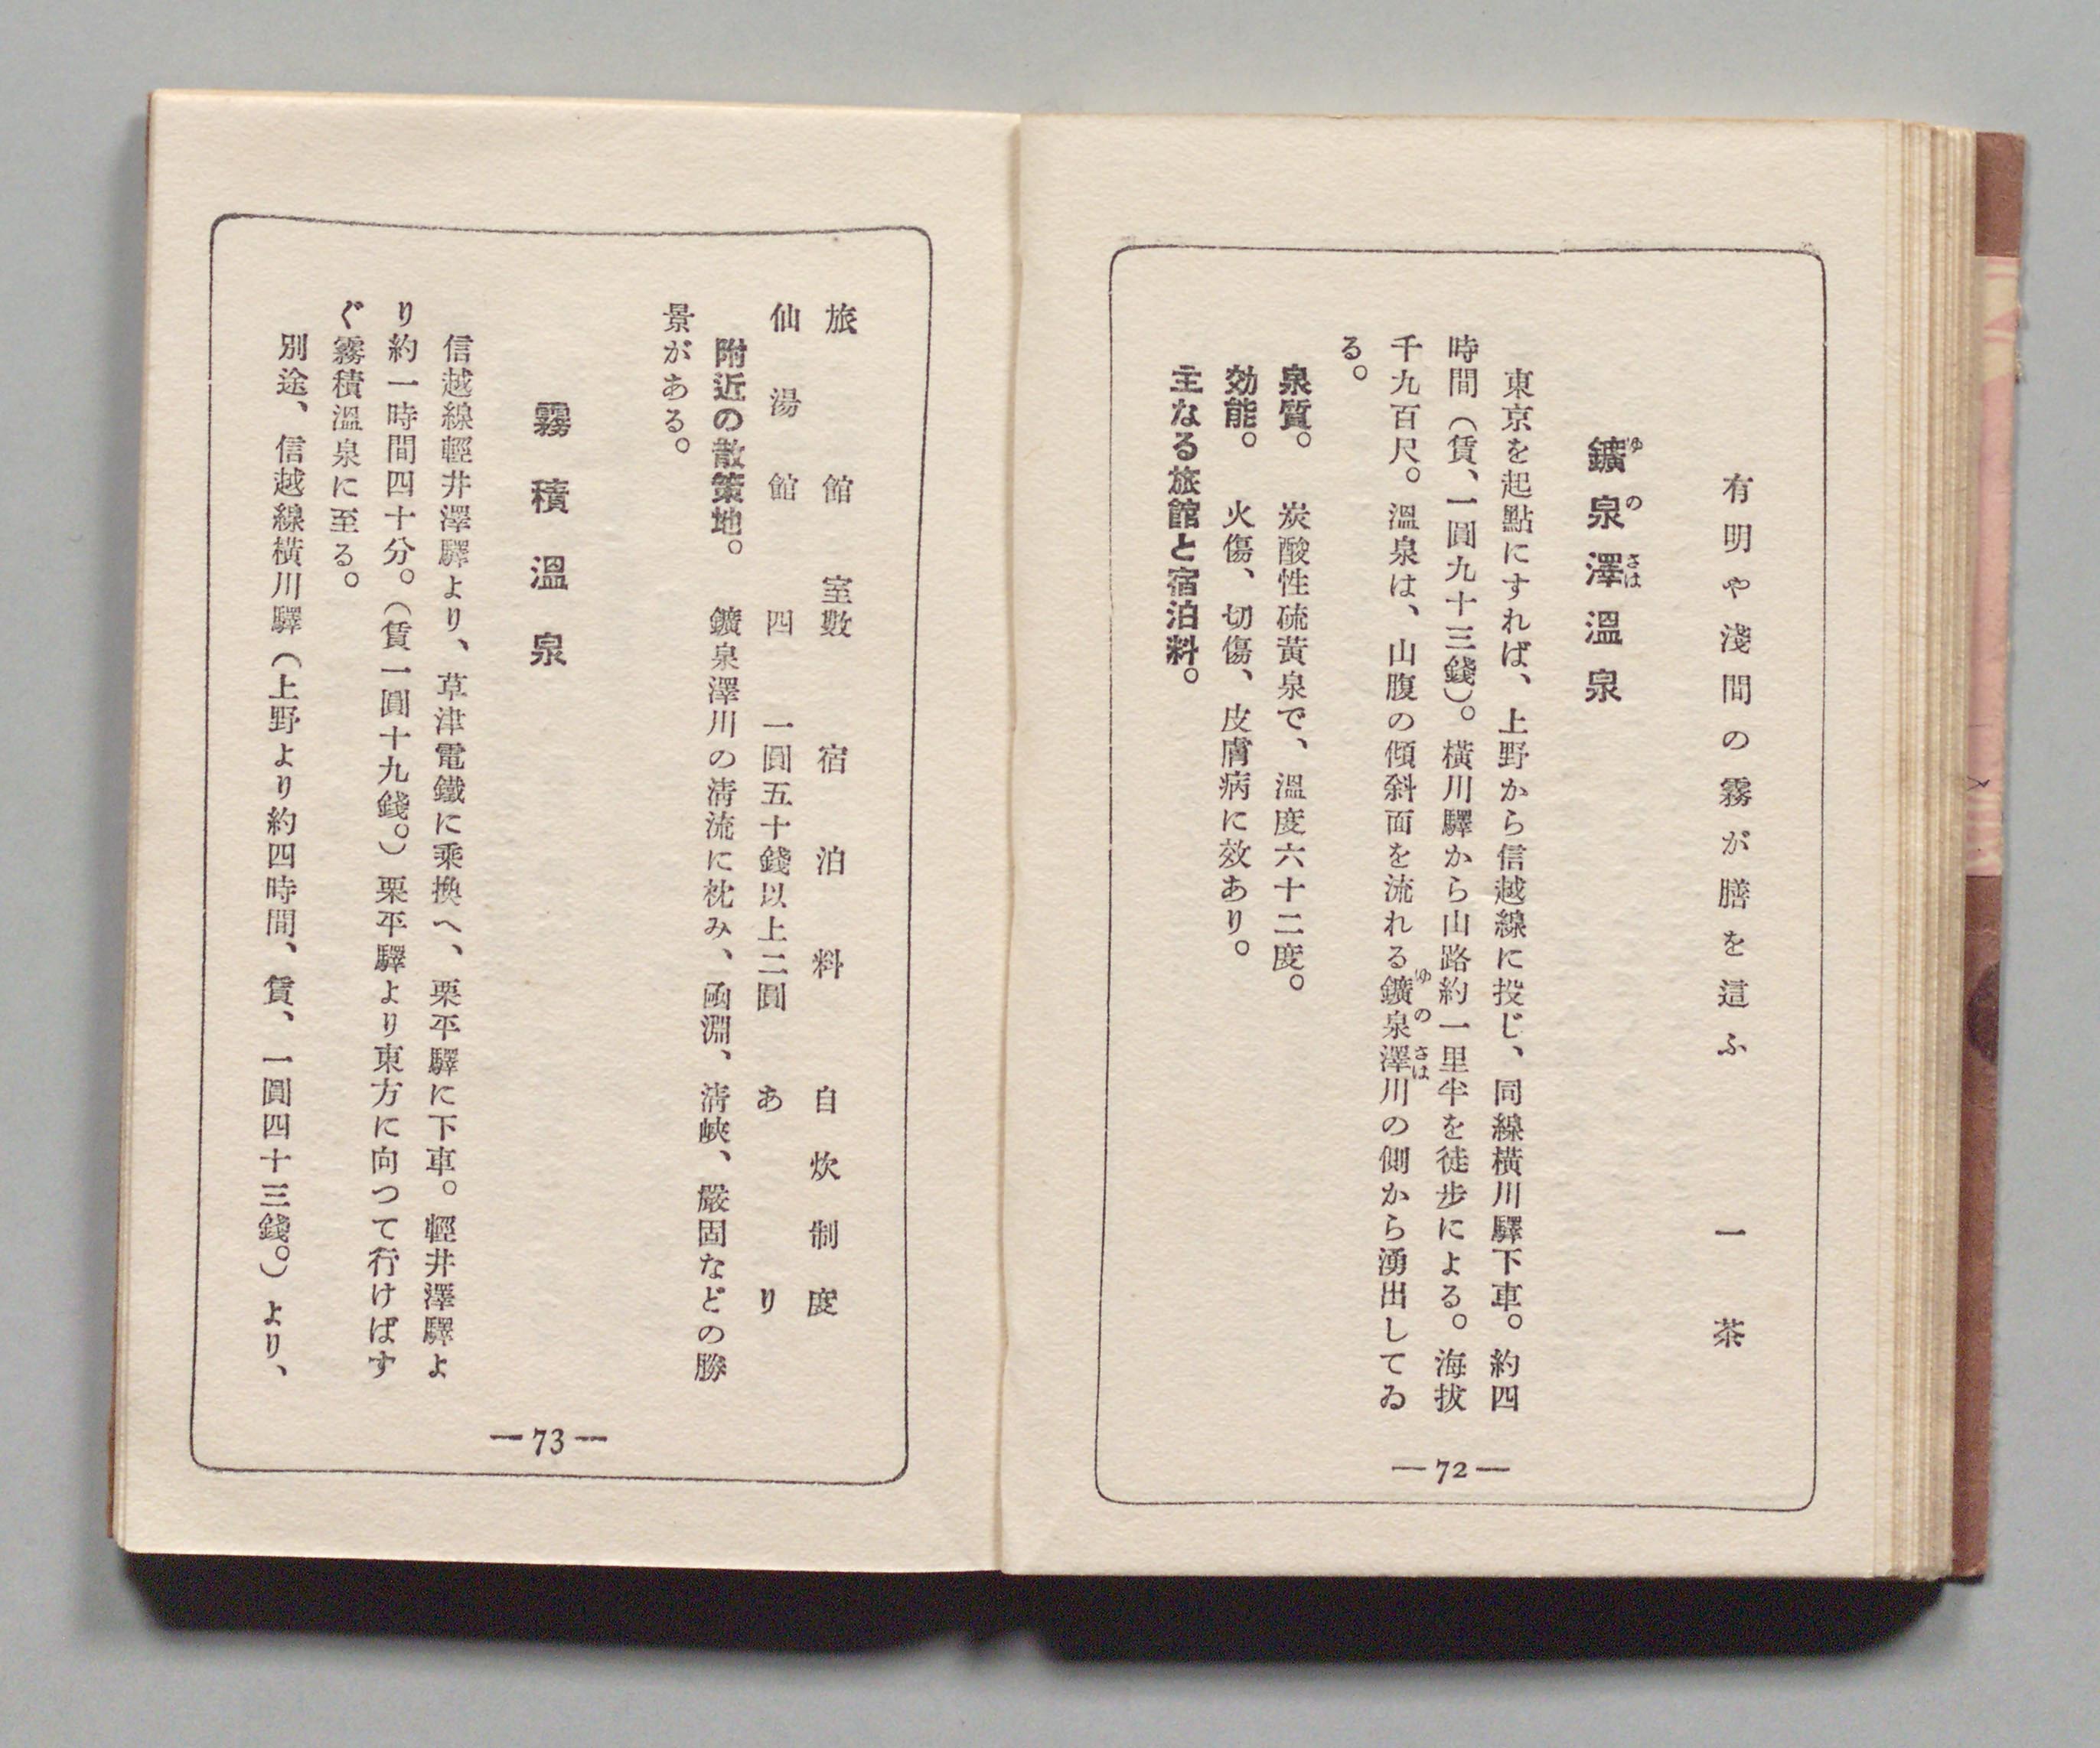 有明や淺間の霧が膳を這ふ　一茶
鑛泉澤溫泉
ゆのさは
東京を起點にすれば、上野から信越線に投じ、同線橫川驛下車。約四
時間（賃、一圓九十三錢）。橫川驛から山路約一里半を徒步による。海拔
千九百尺。溫泉は、山腹の傾斜面を流れる鑛泉澤川の側から湧出してゐ
ゆのさは
る。
泉質。　炭酸性硫黃泉で、溫度六十二度。
効能。　火傷、切傷、皮膚病に效あり。
主なる旅館と宿泊料。
—72—
旅館　室數　宿泊料　自炊制度
仙湯館　四　一圓五十錢以上二圓　あり
附近の散策地。　鑛泉澤川の淸流に枕み、函淵、淸峽、嚴固などの勝
景がある。
霧積溫泉
信越線輕井澤驛より、草津電鐵に乘換へ、栗平驛に下車。輕井澤驛よ
り約一時間四十分。（賃一圓十九錢。）栗平驛より東方に向つて行けばす
ぐ霧積溫泉に至る。
別途、信越線橫川驛（上野より約四時間、賃、一圓四十三錢。）より、
—73—